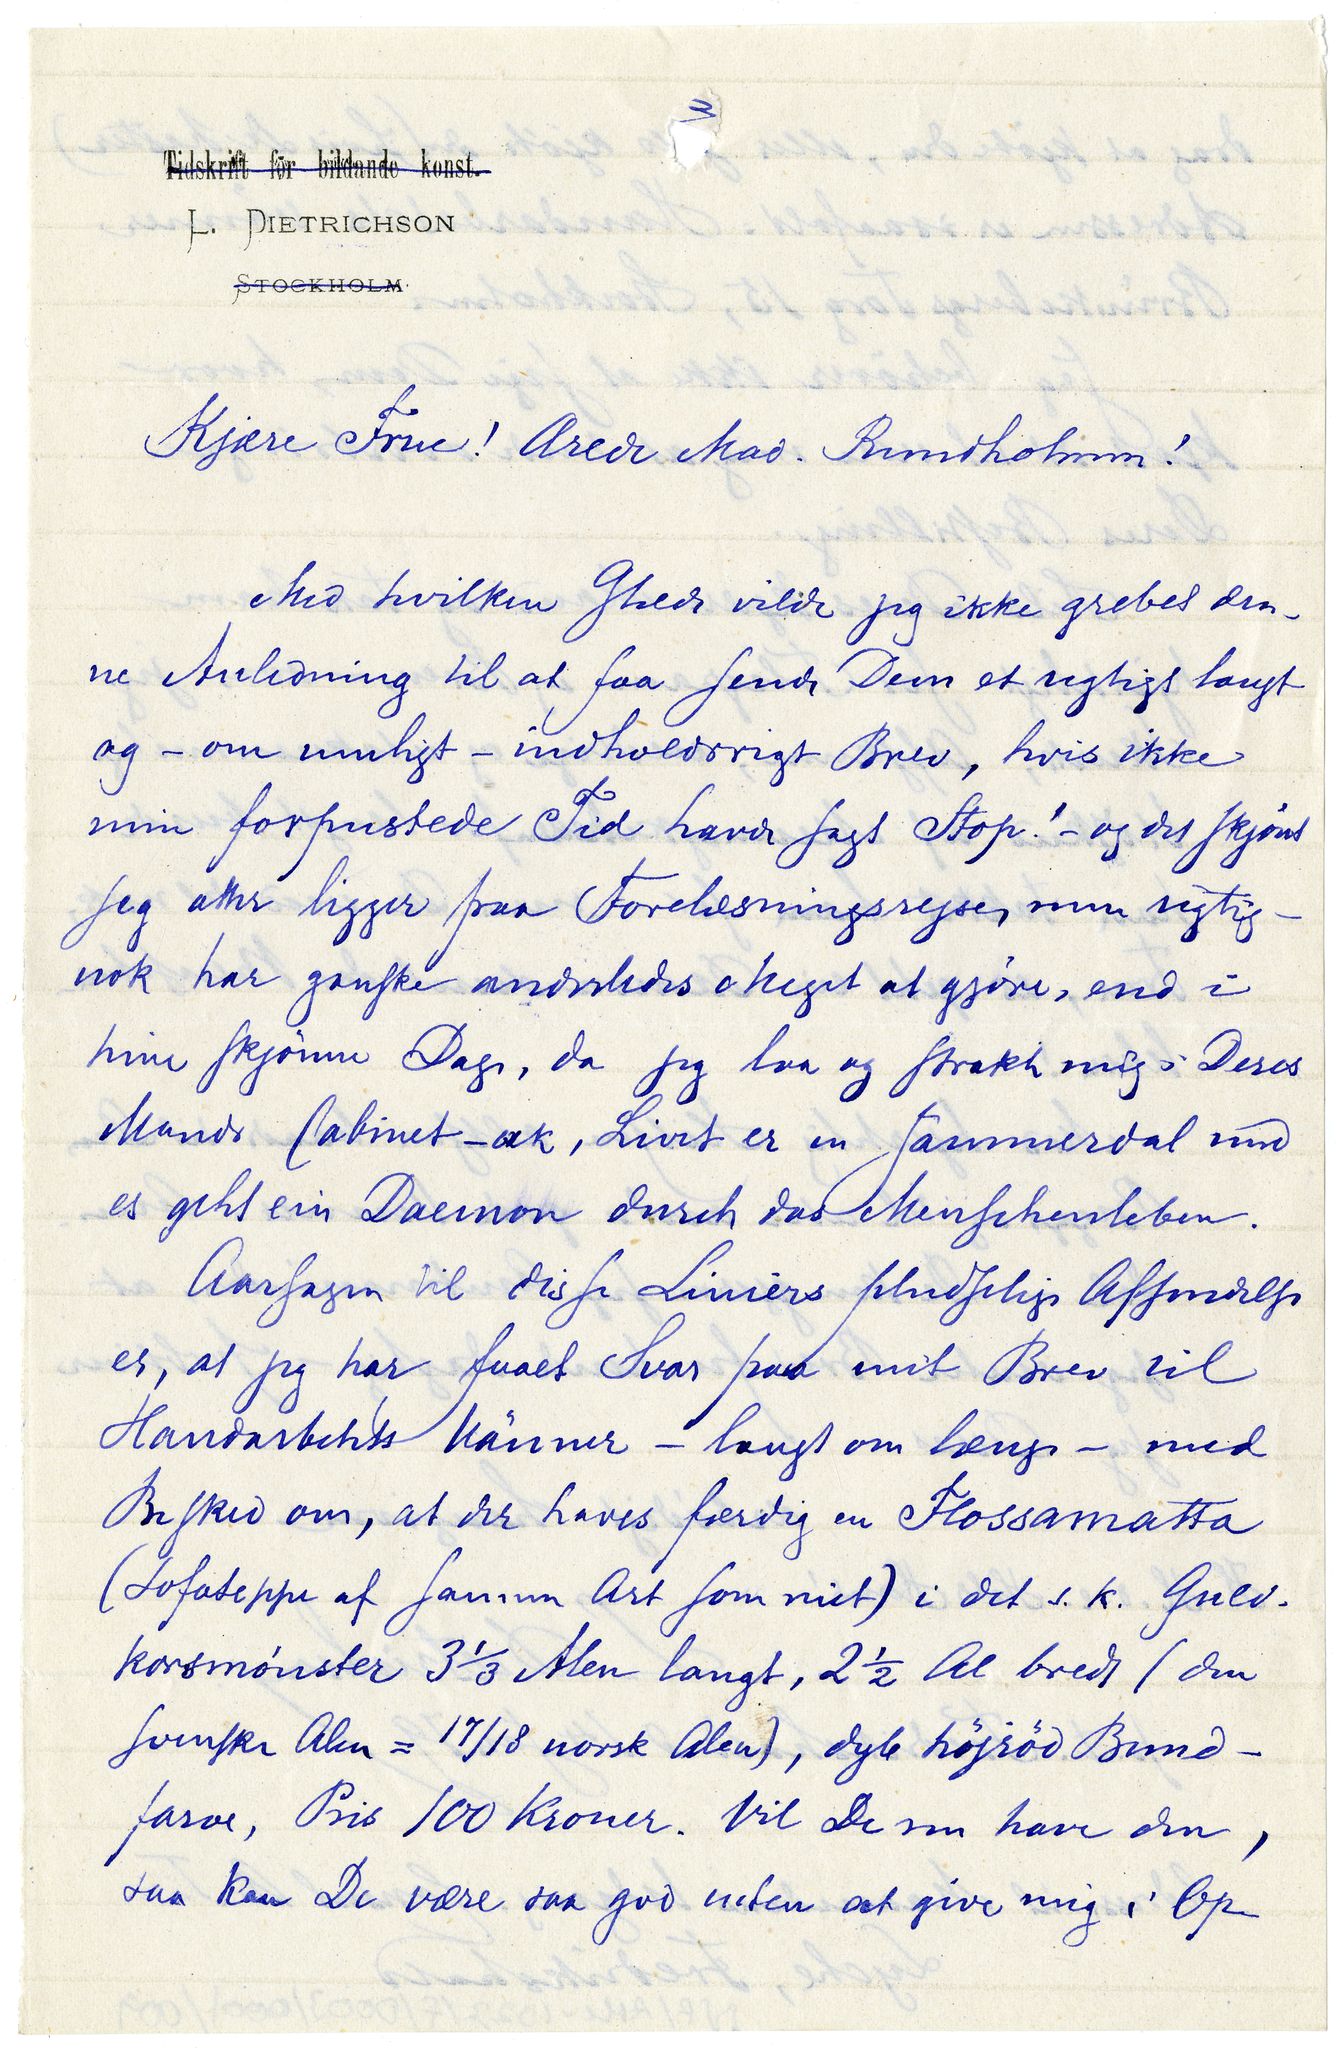 Tidskrift för bildande konst.
L. DIETRICHSON
STOCKHOLM.
Kjære Frue! Ærede Mad. Rundholmen!
Med hvilken Glæde vilde jeg ikke grebet den-
ne Anledning til at faa sende Dem et rigtigt langt
og – om muligt – indholdsrigt Brev, hvis ikke
min forpustede Tid havde sagt Stop! – og det skjønt
jeg atter ligger paa Forelæsningsrejse, men rigtig-
nok har ganske anderledes Meget at gjøre, end i
hine skjønne Dage, da jeg laa og strakte mig i Deres
Mands Cabinet – ak, Livet er en Jammerdal und
es geht ein Daemon durch das Menschenleben.
Aarsagen til disse Liniers pludselige Afsendelse
er, at jeg har faaet Svar paa mit Brev til
Handarbetets Vänner – langt om længe – med
Besked om, at der haves færdig en Flossamatta
(Sofateppe af samme Art som mit) i det s. k. Guld-
korsmönster 3 1/3 Alen langt, 2 1/2 Al bredt (den
svenske Alen = 17/18 norsk Alen), dyb höjröd Bund-
farve, Pris 100 Kroner. Vil De nu have den,
saa kan De være saa god uden at give mig i Op-